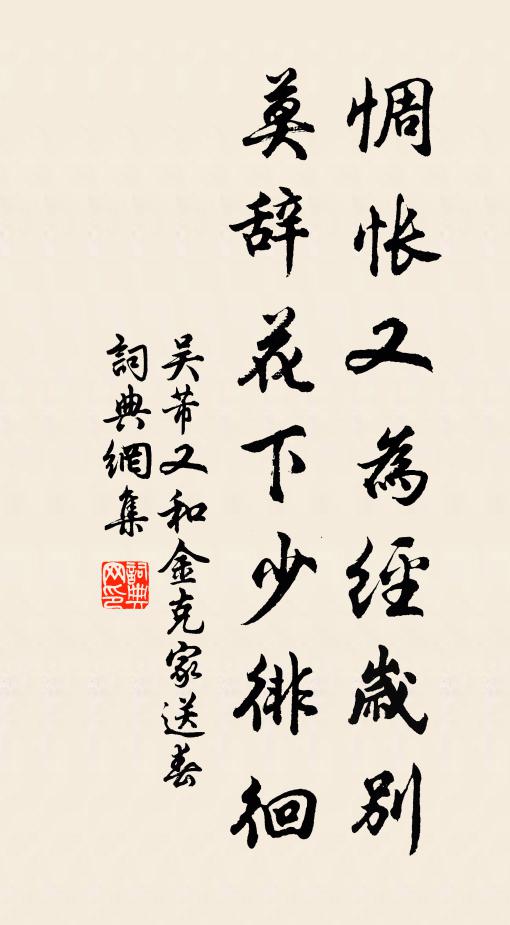 惆悵又為經歲別
莫辭花下少徘徊
吴芾又和金克家送春
詞典網集
詞典
网印